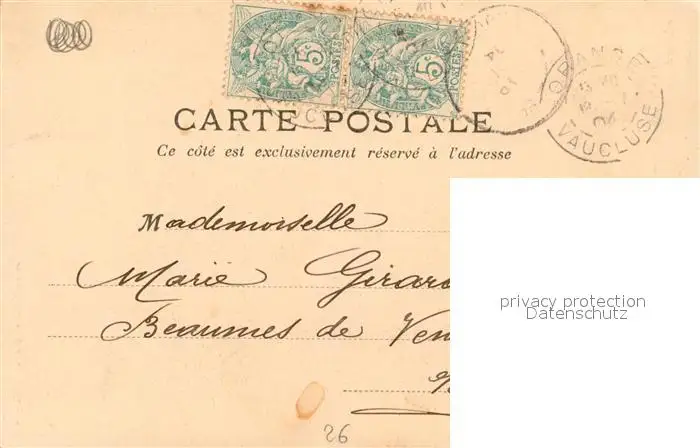 5c
POSTES
5c
POSTES
ORANGE
VAUCLUSE
04
CARTE POSTALE
Ce côté est exclusivement réservé à l'adresse
Mademoiselle
Marie Girar
Beaumes de Ven
privacy protection
Datenschutz
26